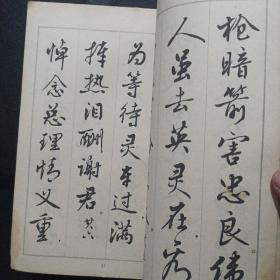 枪暗箭害忠良伟
人虽去英灵在
为等待灵车过满
捧热泪酬谢君其六
悼念总理情义重